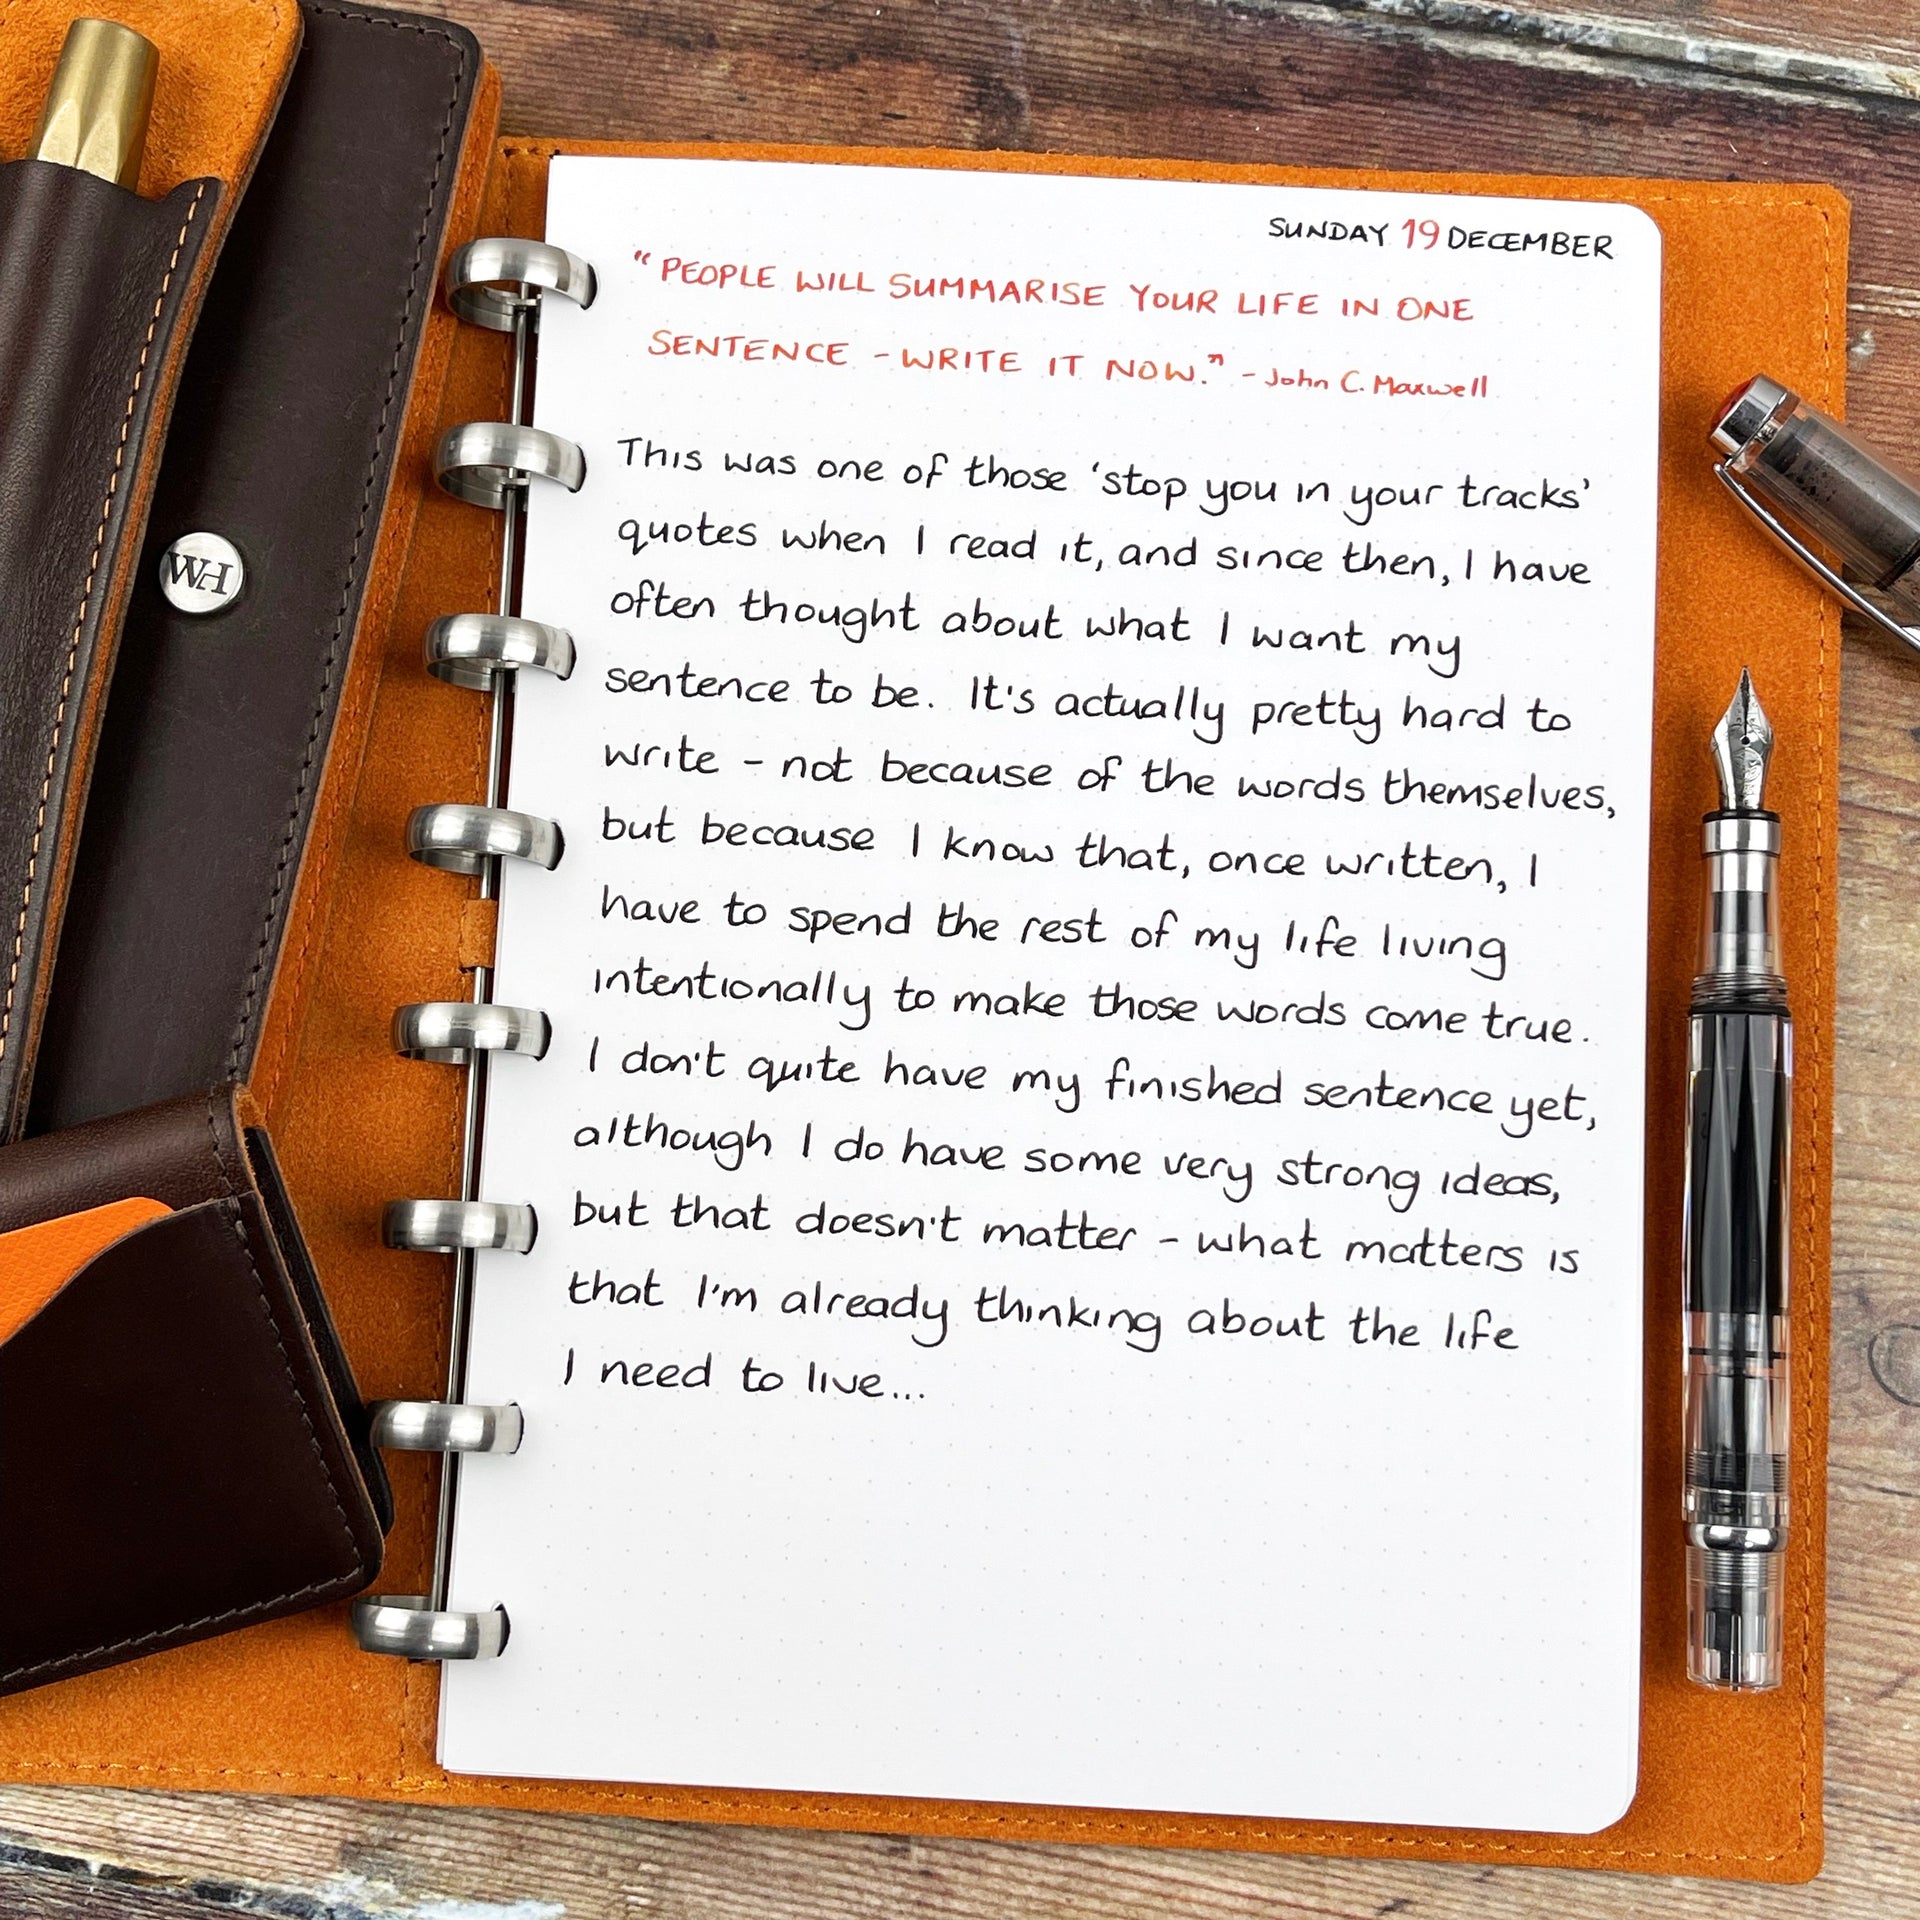 WH
SUNDAY 19 DECEMBER
"PEOPLE WILL SUMMARISE YOUR LIFE IN ONE
SENTENCE - WRITE IT NOW." - John C. Maxwell
This was one of those 'stop you in your tracks'
quotes when I read it, and since then, I have
often thought about what I want my
sentence to be. It's actually pretty hard to
write - not because of the words themselves,
but because I know that, once written, I
have to spend the rest of my life living
intentionally to make those words come true.
I don't quite have my finished sentence yet,
although I do have some very strong ideas,
but that doesn't matter - what matters is
that I'm already thinking about the life
I need to live...